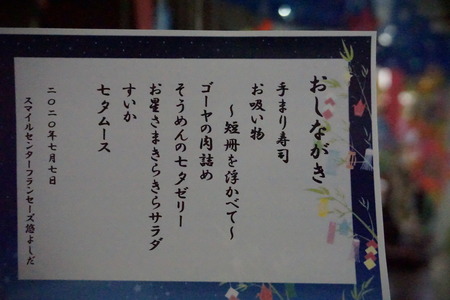 おしながき
手まり寿司
お吸い物
～短冊を浮かべて～
ゴーヤの肉詰め
そうめんの七夕ゼリー
お星さまきらきらサラダ
すいか
七夕ムース
二〇二〇年七月七日
スマイルセンターフランセーズ悠よしだ